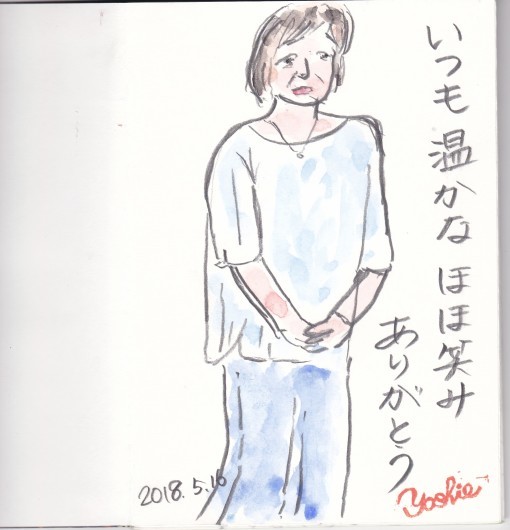 いつも温かなほほ笑み
ありがとう
2018.5.16
Yoshie